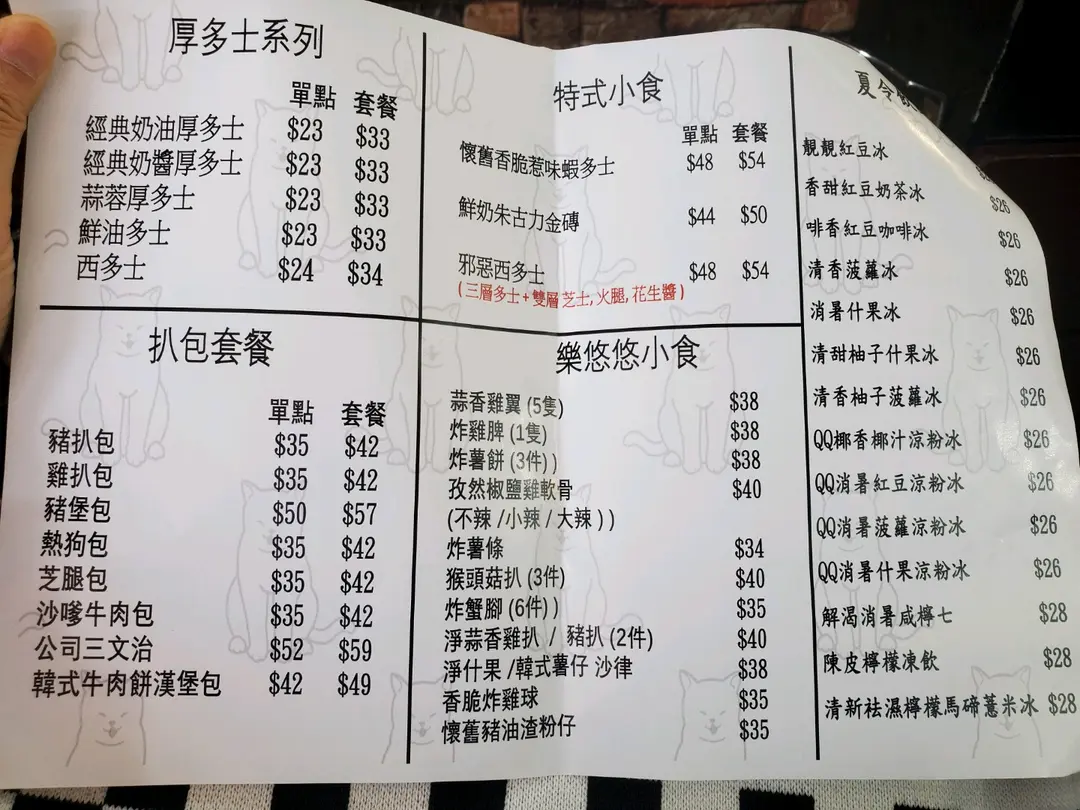 厚多士系列
單點 套餐
經典奶油厚多士 $23 $33
經典奶醬厚多士 $23 $33
蒜蓉厚多士 $23 $33
鮮油多士 $23 $33
西多士 $24 $34
扒包套餐
單點 套餐
豬扒包 $35 $42
雞扒包 $35 $42
豬堡包 $50 $57
熱狗包 $35 $42
芝腿包 $35 $42
沙嗲牛肉包 $35 $42
公司三文治 $52 $59
韓式牛肉餅漢堡包 $42 $49
特式小食
單點 套餐
懷舊香脆惹味蝦多士 $48 $54
鮮奶朱古力金磚 $44 $50
邪惡西多士 $48 $54
( 三層多士 + 雙層 芝士, 火腿, 花生醬 )
樂悠悠小食
蒜香雞翼 (5隻) $38
炸雞脾 (1隻) $38
炸薯餅 (3件) ) $38
孜然椒鹽雞軟骨 $40
(不辣 /小辣 / 大辣 ) )
炸薯條 $34
猴頭菇扒 (3件) $40
炸蟹腳 (6件) ) $35
淨蒜香雞扒 / 豬扒 (2件) $40
淨什果 /韓式薯仔 沙律 $38
香脆炸雞球 $35
懷舊豬油渣粉仔 $35
夏令
靚靚紅豆冰
香甜紅豆奶茶冰 $26
啡香紅豆咖啡冰 $26
清香菠蘿冰 $26
消暑什果冰 $26
清甜柚子什果冰 $26
清香柚子菠蘿冰 $26
QQ椰香椰汁涼粉冰 $26
QQ消暑紅豆涼粉冰 $26
QQ消暑菠蘿涼粉冰 $26
QQ消暑什果涼粉冰 $26
解渴消暑咸檸七 $28
陳皮檸檬凍飲 $28
清新祛濕檸檬馬碲薏米冰 $28